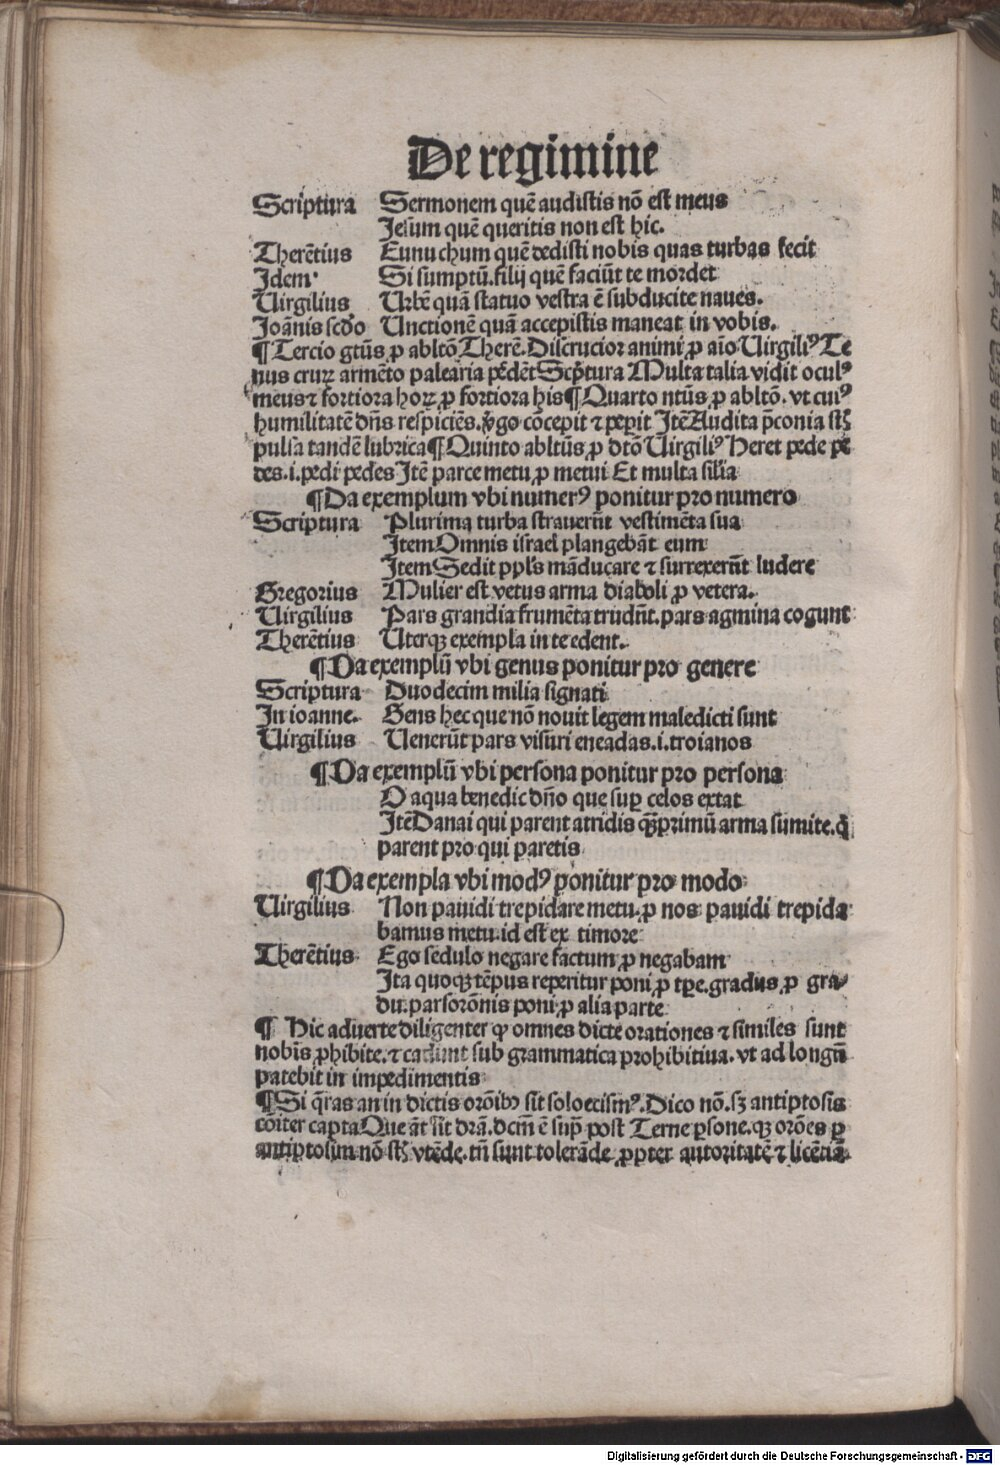 De regimine
Scriptura Sermonem quē audistis nō est meus
Jesum quē queritis non est hic.
Therētius Eunuchum quē dedisti nobis quas turbas fecit
Jdem· Si sumptū.filij quē faciūt te mordet
Uirgilius Urbē quā statuo vestra ē subducite naues.
Joānis scd̄o Unctionē quā accepistis maneat in vobis.
¶Tercio gtūs ꝓ abltō Therē. Discrucior animi ꝓ aīo Uirgiliꝰ Te
nus cruꝝ armēto palearia pēdēt Scp̄tura Multa talia vidit oculꝰ
meus ⁊ fortiora hoꝝ ꝓ fortiora his ¶Quarto ntūs ꝓ abltō. vt cuiꝰ
humilitatē dn̄s respiciēs. v̄go cōcepit ⁊ peꝑit Jtē Audita p̄conia
pulsa tandē lubrica ¶Quinto abltūs ꝓ dtō Uirgiliꝰ Heret pede pe
des.i.pedi pedes Jtē parce metu ꝓ metui Et multa sil̄ia
¶Da exemplum vbi numerꝰ ponitur pro numero
Scriptura Plurima turba strauerūt vestimēta sua
Jtem Omnis israel plangebāt eum
Jtem Sedit ppl̄s māducare ⁊ surrexerūt ludere
Gregorius Mulier est vetus arma diaboli ꝓ vetera.
Uirgilius Pars grandia frumēta trudūt.pars agmina cogunt
Therētius Uterqꝫ exempla in te edent.
¶Da exemplū vbi genus ponitur pro genere
Scriptura Duodecim milia signati
Jn ioanne. Gens hec que nō nouit legem maledicti sunt
Uirgilius Uenerūt pars visuri eneadas.i.troianos
¶Da exemplū vbi persona ponitur pro persona
O aqua benedic dn̄o que suꝑ celos extat
Jtē Danai qui parent atridis qꝫprimū arma sumite.q̄
parent pro qui paretis
¶Da exempla vbi modꝰ ponitur pro modo
Uirgilius Non pauidi trepidare metu.ꝓ nos pauidi trepida
bamus metu.id est ex timore
Therētius Ego sedulo negare factum ꝓ negabam
Jta quoqꝫ tēpus reperitur poni ꝓ tꝑe.gradus ꝓ gra⸗
du.pars orōnis poni ꝓ alia parte
¶ Hic aduerte diligenter ꝙ omnes dicte orationes ⁊ similes sunt
nobīs ꝓhibite.⁊ cadunt sub grammatica prohibitiua.vt ad longū
patebit in impedimentis
¶Si q̄ras an in dictis orōibꝰ sit soloecismꝰ. Dico nō.sꝫ antiptosis
cōiter capta Que āt sit dr̄a.dcm̄ ē sup̄ post Terne ꝑsone.qꝫ orōes ꝑ
antiptosim nō vtēde.tn̄ sunt tolerāde ꝓpter autoritatē ⁊ licētiā
Digitalisierung gefördert durch die Deutsche Forschungsgemeinschaft - DFG